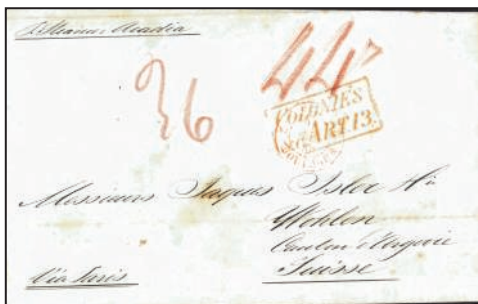 Steamer Acadia
44
36
COLONIES
ART. 13.
Messieurs Jaques Isler
Wohlen
Canton d'Argovie
Suisse
Via Paris